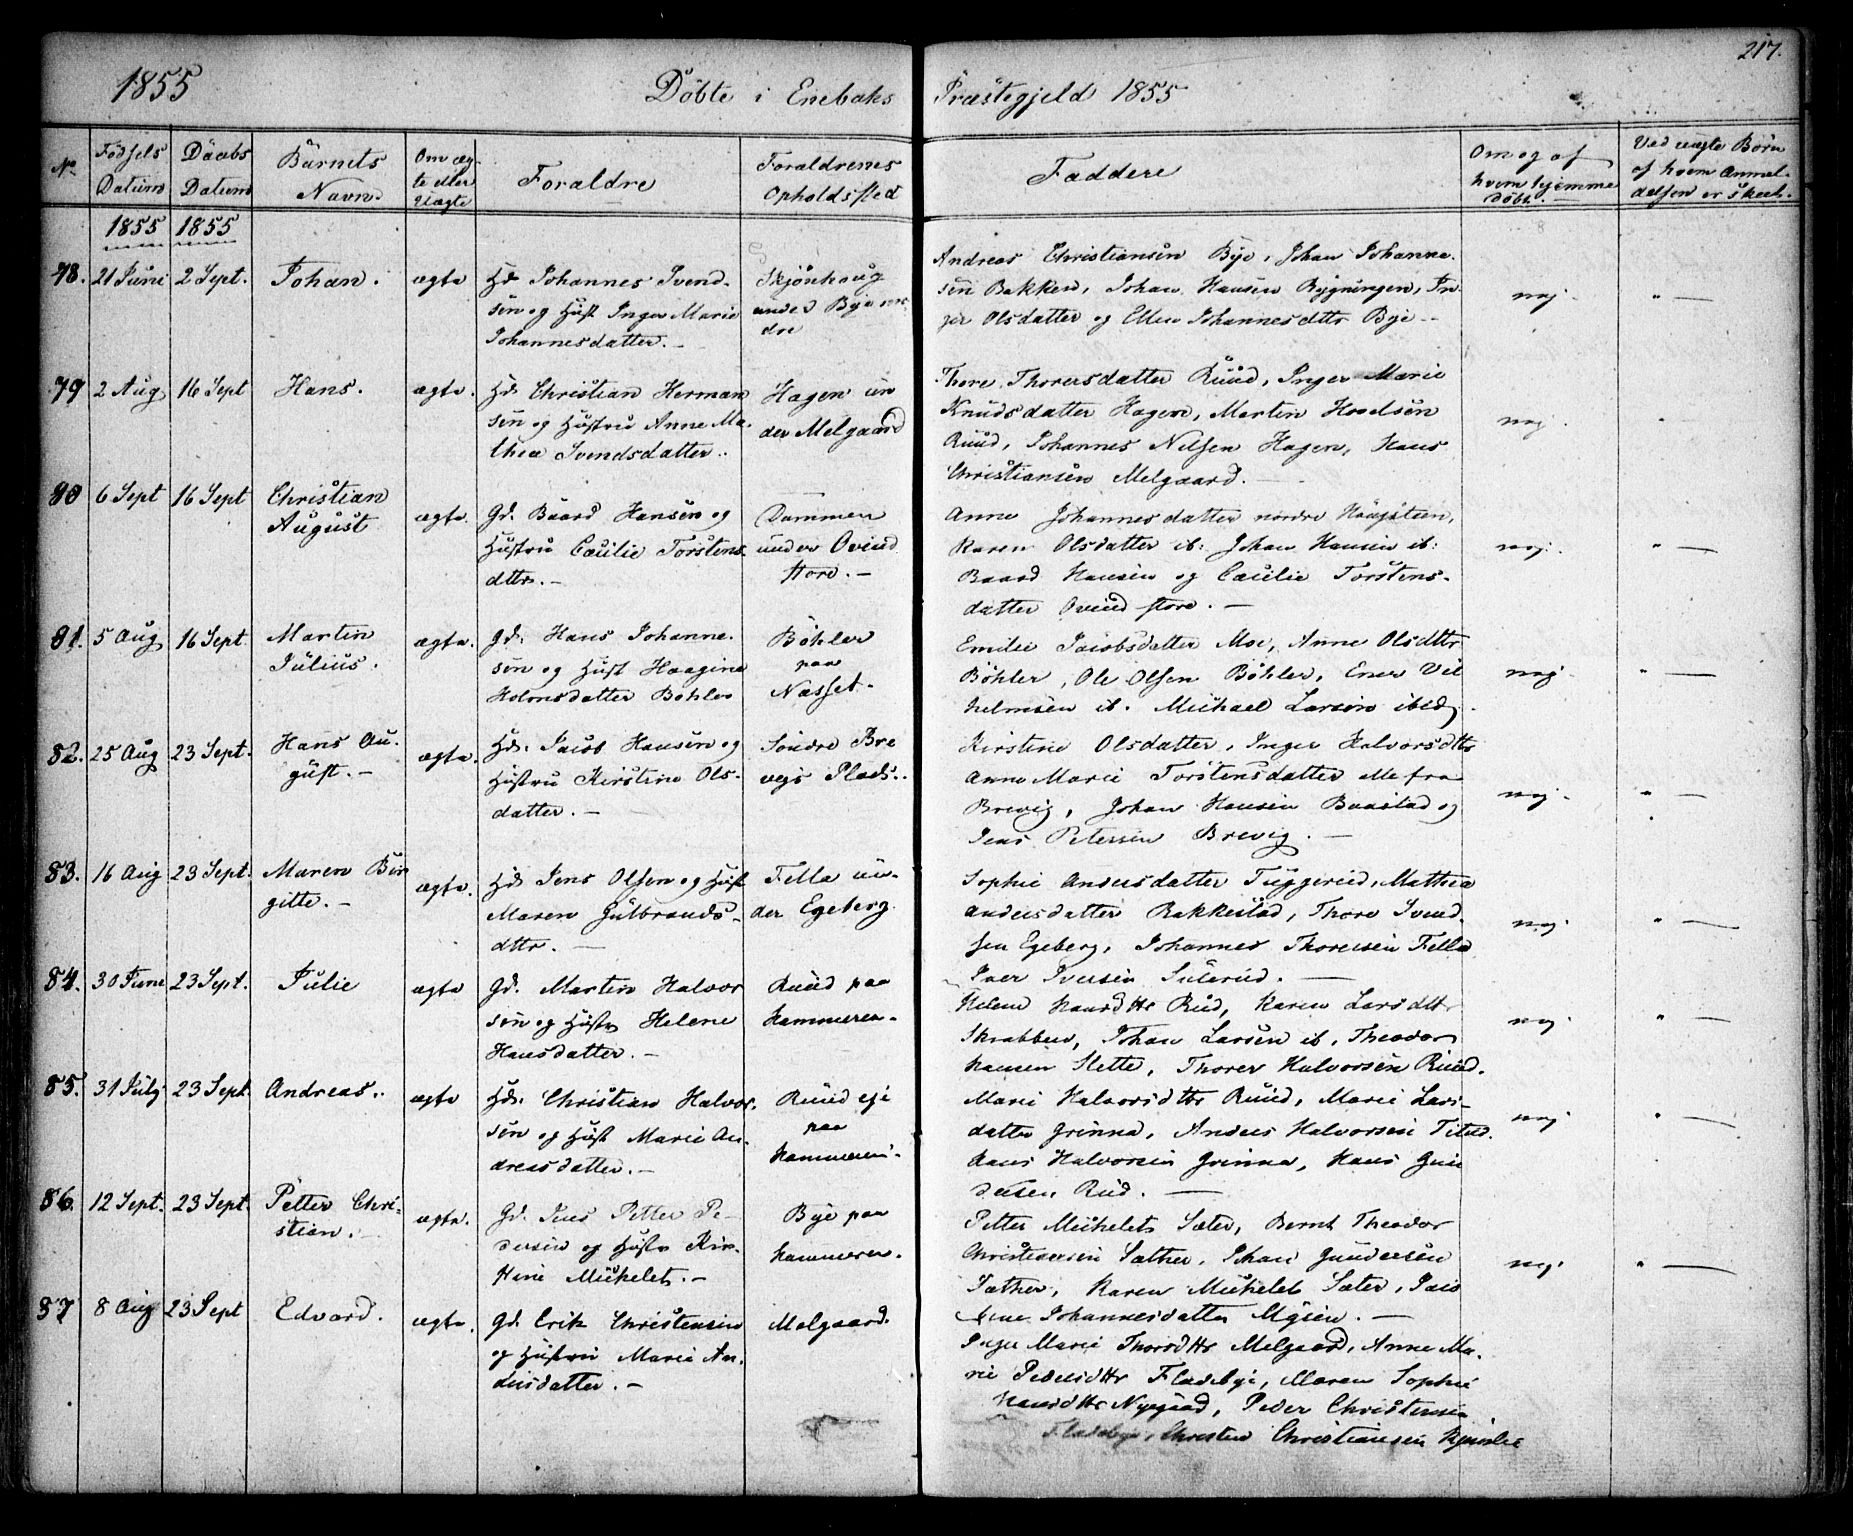 217.
1855 Döbte i Enebaks Præstegjeld 1855
No Födsels Datum Daabs Datum Barnets Navn Om ægte eller Uægte Forældre Forældrenes Opholdssted Faddere Om og af hvem hjemme döbt. Ved uægte Börn af hvem Anmeldelsen er skeet.
1855 1855
78. 21 Juni 2 Sept. Johan. ægte Hd. Johannes Svend-
sen og Hust Inger Marie
Johannesdatter.-
Skjönhaug
under Bye nor-
dre
Andreas Christiansen Bye, Johan Johanne-
sen Bakken, Johan Hansen Bygningen, In-
ger Olsdatter og Ellen Johannesdttr Bye --
nej. " —
79 2 Aug 16 Sept Hans. ægte. Hd. Christian Herman
sen og Hustru Anne Ma-
thea Svendsdatter..
Hagen un
der Melgaard
Thore Thorersdatter Ruud, Inger Marie
Knudsdatter Hagen, Martin
Ruud, Johannes Nilsen Hagen, Hans
Christiansen Melgaard. -
nej. "
80 6 Sept 16 Sept Christian
August
ægte. Gd. Baard Hansen og
Hustru Cecilie Torstens-
dttr. -
Dammen
under Ovind
store. -
Anne Johannesdatter nordre
Karen Olsdatter ib: Johan Hansen ib:
Baard Hansen og Cecilie Torstens-
datter Ovind store. -
nej. " —
81. 5 Aug 16 Sept Martin
Julius.
ægte. Gd. Hans Johanne-
sen og Hust Haagine
Holmsdatter Böhler
Böhler
paa
Næsset.
Emilie Jacobsdatter Moe, Anne Olsdttr
Böhler, Ole Olsen Böhler, Ener Vil
helmsen ib. Michael Larsen ibid.
nej. " —
82. 25 Aug 23 Sept. Hans Au-
gust. -
ægte. Hd. Jacob Hansen og
Hustru Kirstine Ols-
datter. -
Söndre Bre
vigs Plads..
Kirstine Olsdatter, Inger Halvorsdttr
Anne Marie Torstensdatter alle fra
Brevig, Johan Hansen Baastad og
Jens Petersen Brevig. -
nej. " —
83. 16 Aug 23 Sept. Maren Bir
gitte. -
ægte. Hd. Jens Olsen og Hust
Maren Gulbrands-
dttr. -
Fella un-
der Egeberg
Sophie Andersdatter Tuggerud, Mathea
Andersdatter Bakkestad, Thore Svend-
sen Egeberg, Johannes Thoresen Fella
Iver Iversen Sulerud. -
nej. " —
84. 30 Juni 23 Sept. Julie ægte Gd. Martin Halvor
sen og Hustr Helene
Hansdatter. -
Ruud paa
Hammeren.
Helene Hansdttr Rud, Karen Larsdttr
Skrabben, Johan Larsen ib, Theodor
Hansen Slette, Thorer Halvorsen Ruud.
nej. " —
85. 31 July 23 Sept. Andreas.. ægte Hd. Christian Halvor-
sen og Hust Marie An-
dreasdatter. -
Ruud eje
paa
Hammeren.
Marie Halvorsdttr Ruud, Marie Lars-
datter Grinna, Anders Halvorsen
Hans Halvorsen Grinna, Hans Gun
dersen Rud. -
nej " —
86. 12 Sept. 23 Sept. Petter Chri-
stian.
ægte. Gd. Jens Petter Pe-
dersen og Hustr Kir-
stine Michelet. -
Bye paa
Hammeren.
Petter Michelet Sæter, Bernt Theodor
Christiansen Sæther, Johan Gundersen
Sæther, Karen Michelet Sæter,
Johannesdatter. -
nej. " —
87 8 Aug 23 Sept Edvard. ægte. Gd. Erik Christensen
og Hustru Marie An-
dersdatter. -
Melgaard.
Inger Marie Thorsdttr Melgaard, Anne Ma-
rie Pedersdttr Fladebye, Maren Sophie
Hansdttr Nygaard, Peder Christensen
Fladebye, Christen Christiansen